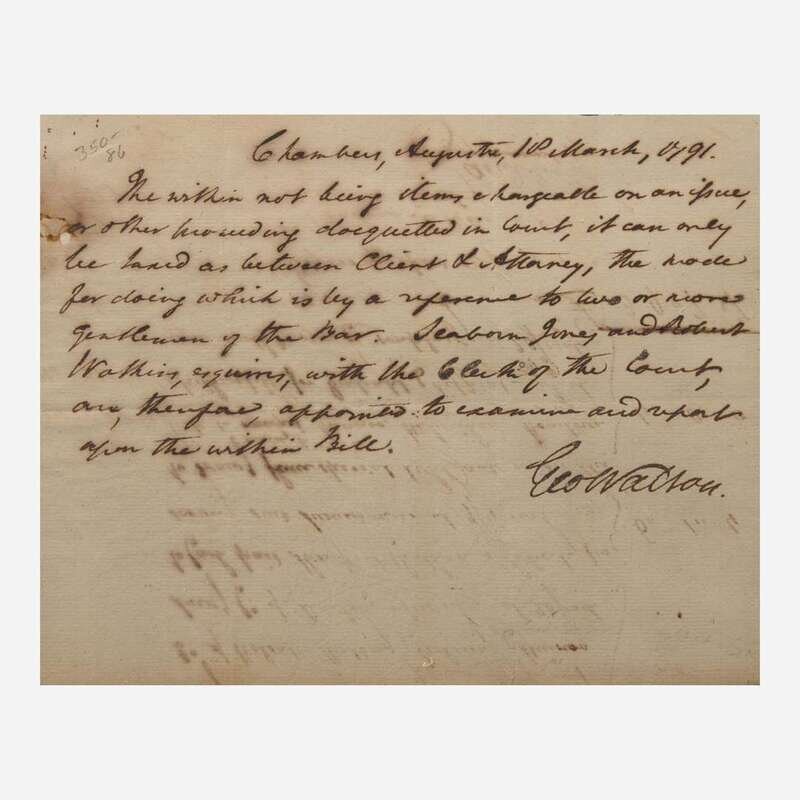 350-
86
Chambers, Augusta, 18 March, 1791.
The within not being items chargeable on an issue,
or other proceeding docquetted in Court, it can only
be taxed as between Client & Attorney, the mode
for doing which is by a reference to two or more
gentlemen of the Bar. Seaborn Jones and Robert
Watkins, esquires, with the Clerk of the Court,
are, therefore, appointed to examine and report
upon the within Bill.
Geo Walton.